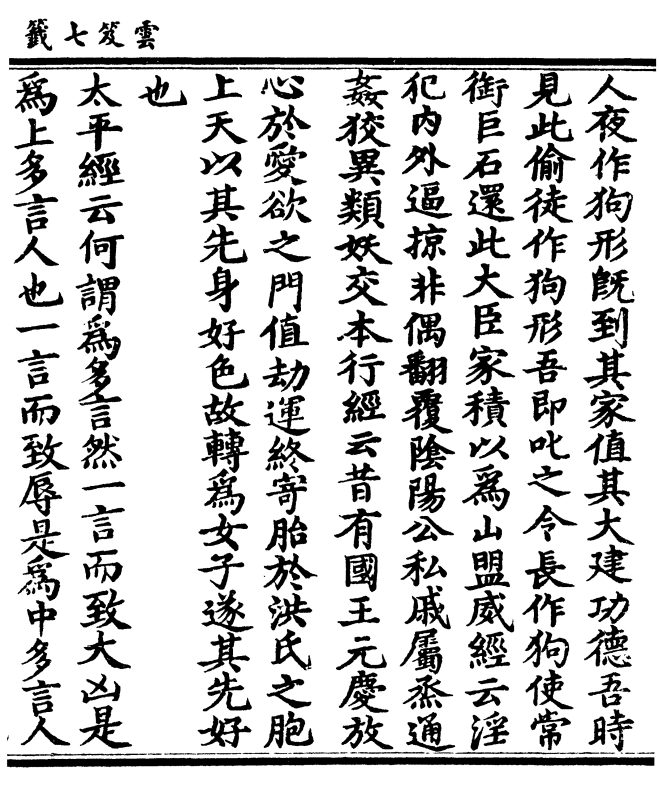 雲笈七籤
人夜作狗形旣到其家值其大建功德吾時
見此偷徒作狗形吾即叱之令長作狗使常
銜巨石還此大臣家積以爲山盟威經云淫
犯內外逼掠非偶翻覆陰陽公私戚屬烝通
姦狡異類妖交本行經云昔有國王元慶放
心於愛欲之門值劫運終寄胎於洪氏之胞
上天以其先身好色故轉爲女子遂其先好
也
太平經云何謂爲多言然一言而致大凶是
爲上多言人也一言而致辱是爲中多言人